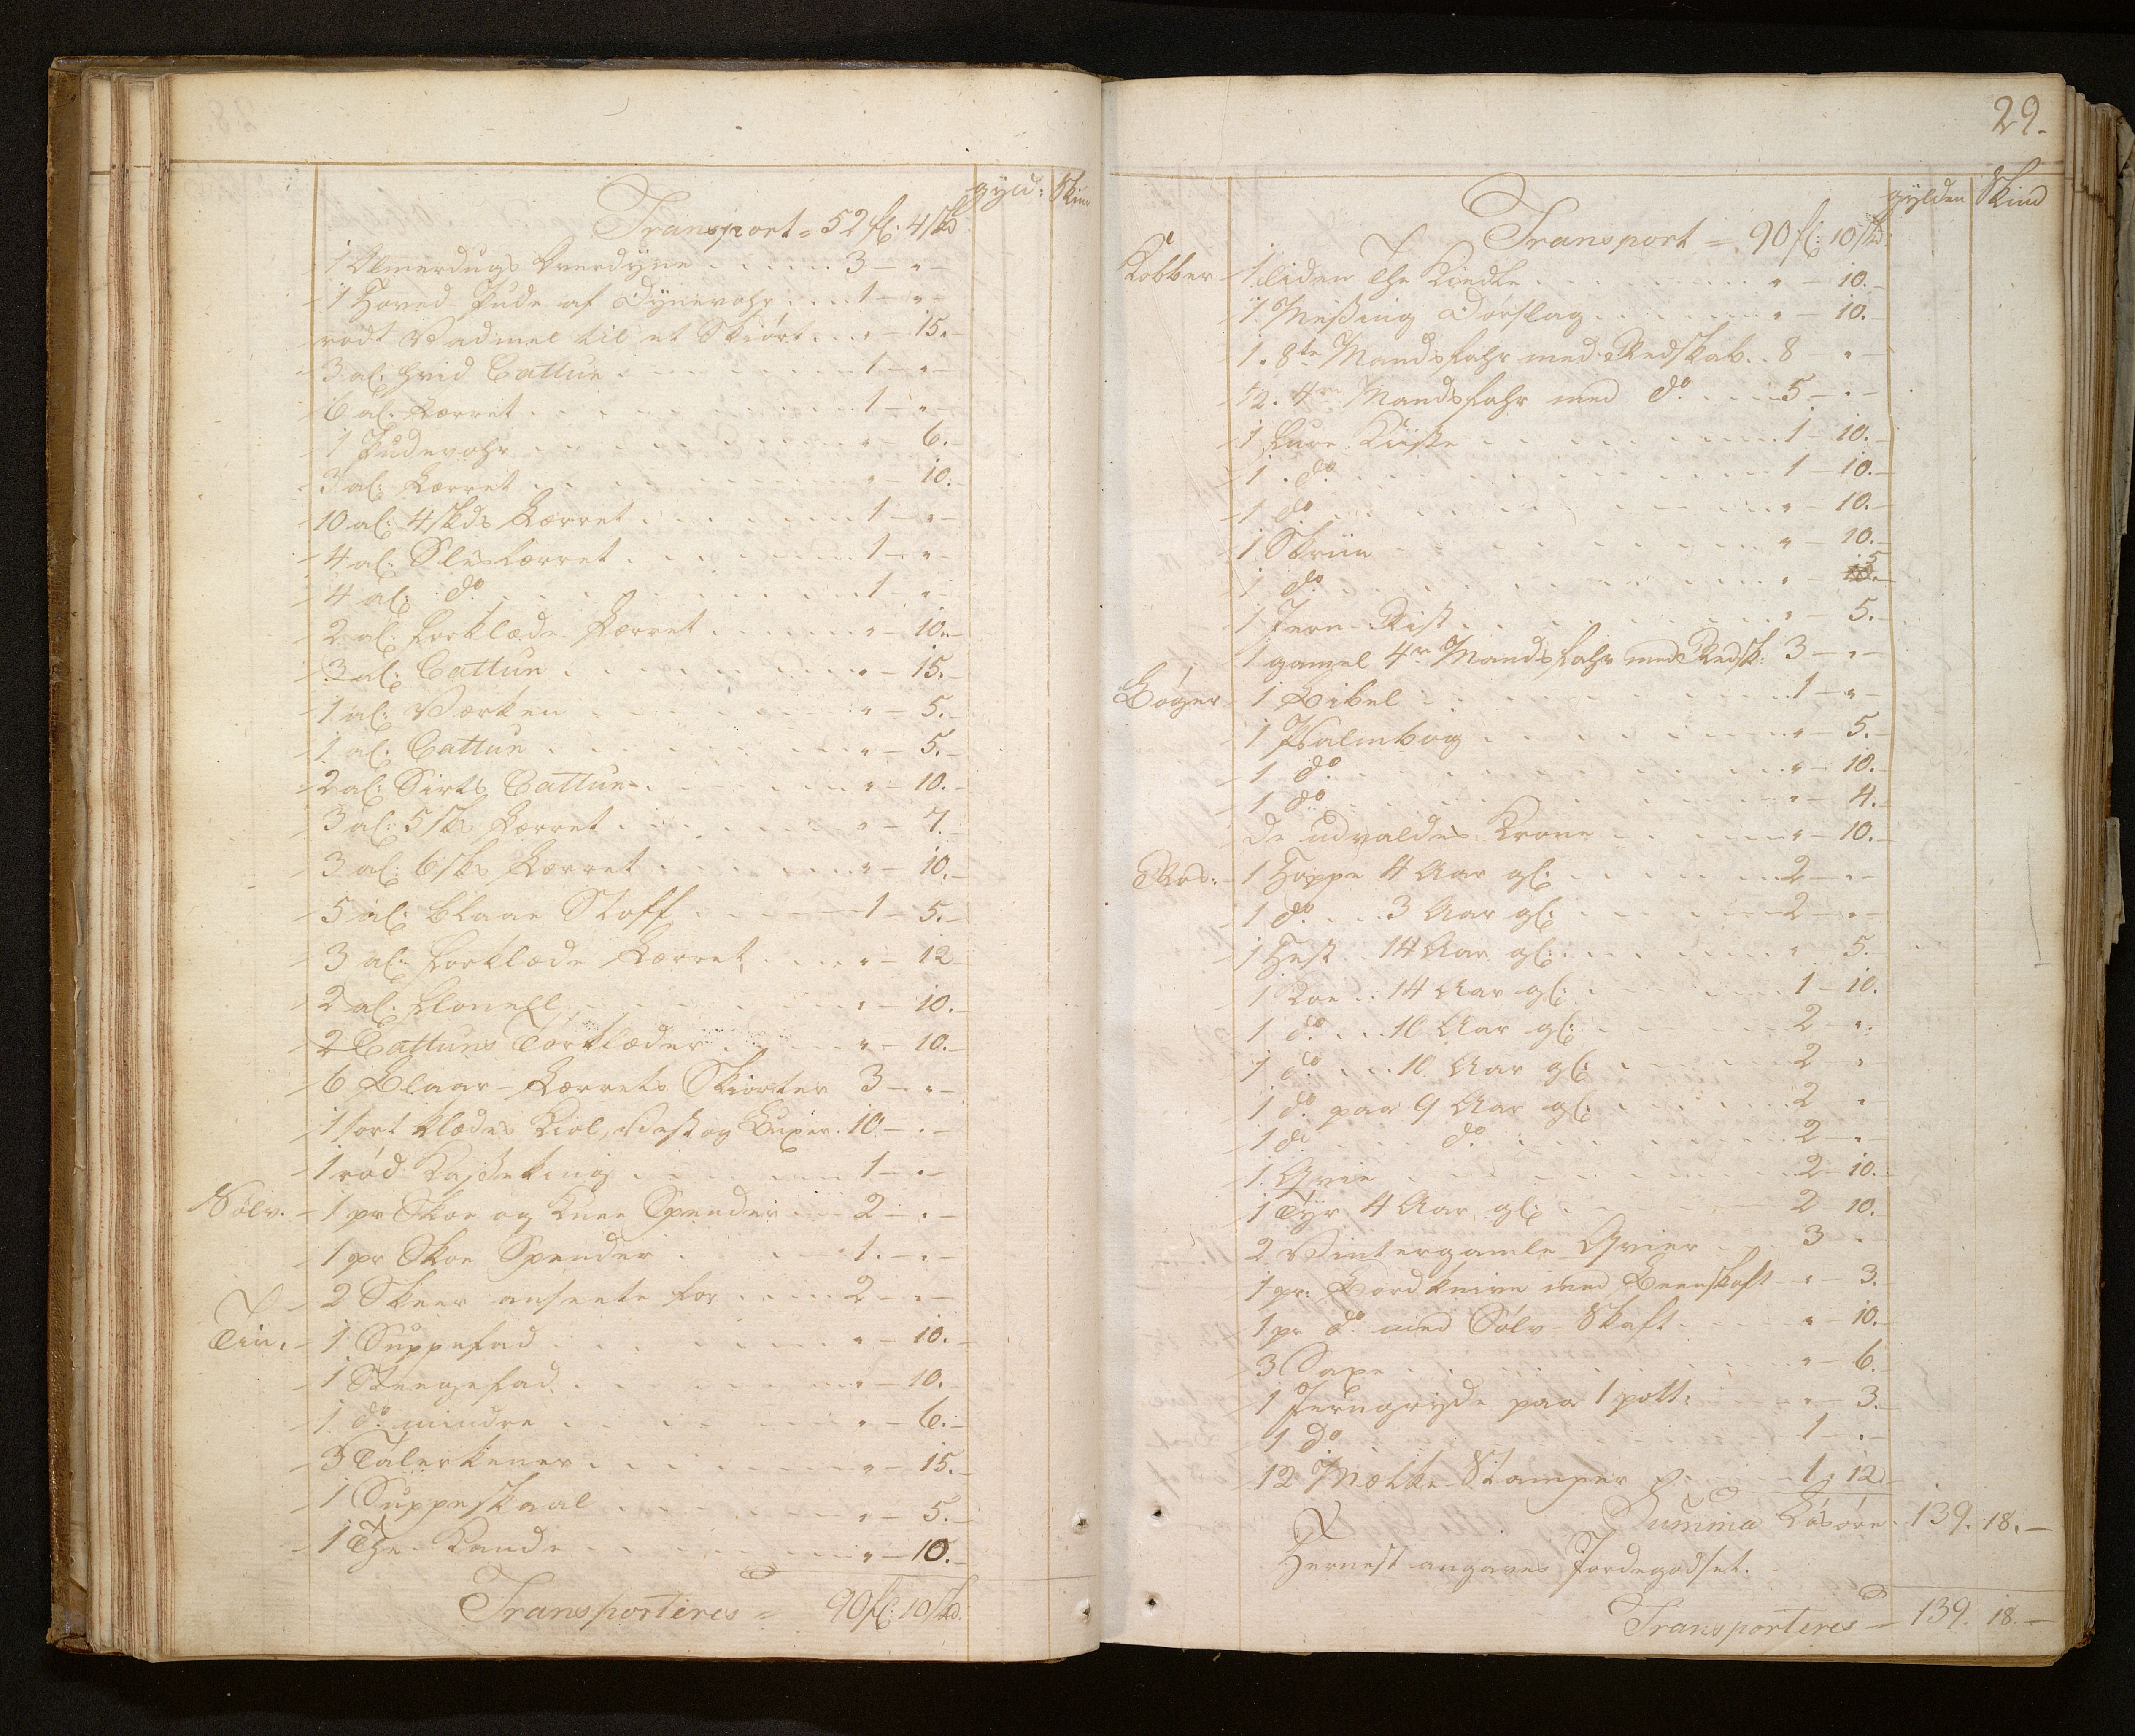 gyld: Skind
Transport = 52 fl: 4 skd
1 Olmerdugs Overdyne . . . . 3 — " —
1 Hoved-Pude af Dynevahr . . . 1 — " —
rødt Vadmel til et Skiørt . . . " — 15. —
3 al: hvid Cattun . . . 1 — " —
6 al: Lærret . . . 1 — " —
1 Pudevahr . . . " — 6. —
3 al: Lærret . . . " — 10. —
10 al: 4 skds Lærret . . . 1 — " —
4 al: Sleslærret . . . 1 — " —
4 al: do . . . 1 — " —
2 al: Forklæde-Lærret . . . " — 10. —
3 al: Cattun . . . " — 15. —
1 al: Værken . . . " — 5. —
1 al: Cattun . . . " — 5. —
2 al: Sirts Cattun . . . " — 10. —
3 al: 5 sks Lærret . . . " — 7. —
3 al: 6 sks Lærret . . . " — 10. —
5 al: blaae Stoff . . . 1 — 5. —
3 al: Forklæde Lærret . . . " — 12 —
2 al: Flonell . . . " — 10. —
2 Cattuns Tørklæder . . . " — 10. —
6 Blaar-Lærrets Skiorter 3 — " —
1 sort Klædes Kiol, Vest og Buxer . 10 — " —
1 rød Kasseking . . . 1 — " —
Sølv. 1 pr Skoe og Knee Spender . . . 2 — " —
1 pr Skoe Spender . . . 1. — " —
2 Skeer ansente for . . . 2 — " —
Tin. 1 Suppefad . . . " — 10. —
1 Steegefad . . . " — 10. —
1 do mindre . . . " — 6. —
3 Talerkener . . . " — 15. —
1 Suppeskaal . . . " — 5. —
1 The-Kande . . . " — 10. —
Transporteres = 90 fl: 10 skd.
29.
gylden Skind
Transport = 90 fl: 10 skd
Kobber 1 liden The Kiedle . . . " — 10. —
1 Messing Dørslag . . . " — 10. —
1. 8te Mandsfahr med Redskab . . 8 " —
2. 4re Mandsfahr med do . . . 5 — " —
1 Fure Kiiste . . . 1 — 10. —
1 . do . . . 1 — 10. —
1 do . . . " — 10. —
1 Skriin . . . " — 10. —
1 do . . . " — 5. —
1 Jern-Rist . . . " — 5. —
1 gamel 4re Mandsfahr med Redsk: 3 — " —
Bøger 1 Bibel . . . 1 — " —
1 Psalmbog . . . " — 5. —
1 do . . . " — 10. —
1 do . . . " — 4. —
De udvaldes Krone . . . " — 10. —
1 Hoppe 4 Aar gl: . . . 2 — " —
1 do . . . 3 Aar gl: . . . 2 — " —
1 Hest . . 14 Aar gl: . . . " 5.
1 Koe . . 14 Aar gl: . . . 1 — 10.
1 do . . . 10 Aar gl: . . . 2 — "
1 do . . . 10 Aar gl: . . . 2 — "
1 do paa 9 Aar gl: . . . 2 — "
1 do do . . . 2 — " —
1 Qvie . . . 2 — 10. —
1 Tyr 4 Aar gl: . . . 2 10.
2 Vintergamle Qvier . . . 3 "
1 pr: Bordknive med Beenskaft " — 3. —
1 pr do med Sølv-Skaft . . . " — 10. —
3 Saxe . . . " — 6. —
1 Jerngryde paa 1 pott: . . . " — 3. —
1 do . . . 1 — " —
12 Melke-Stamper . . . 1 : 12 —
Summa Løsøre . 139. 18. —
Hernest angaves Jordegodset.
Transporteres = 139. 18. —